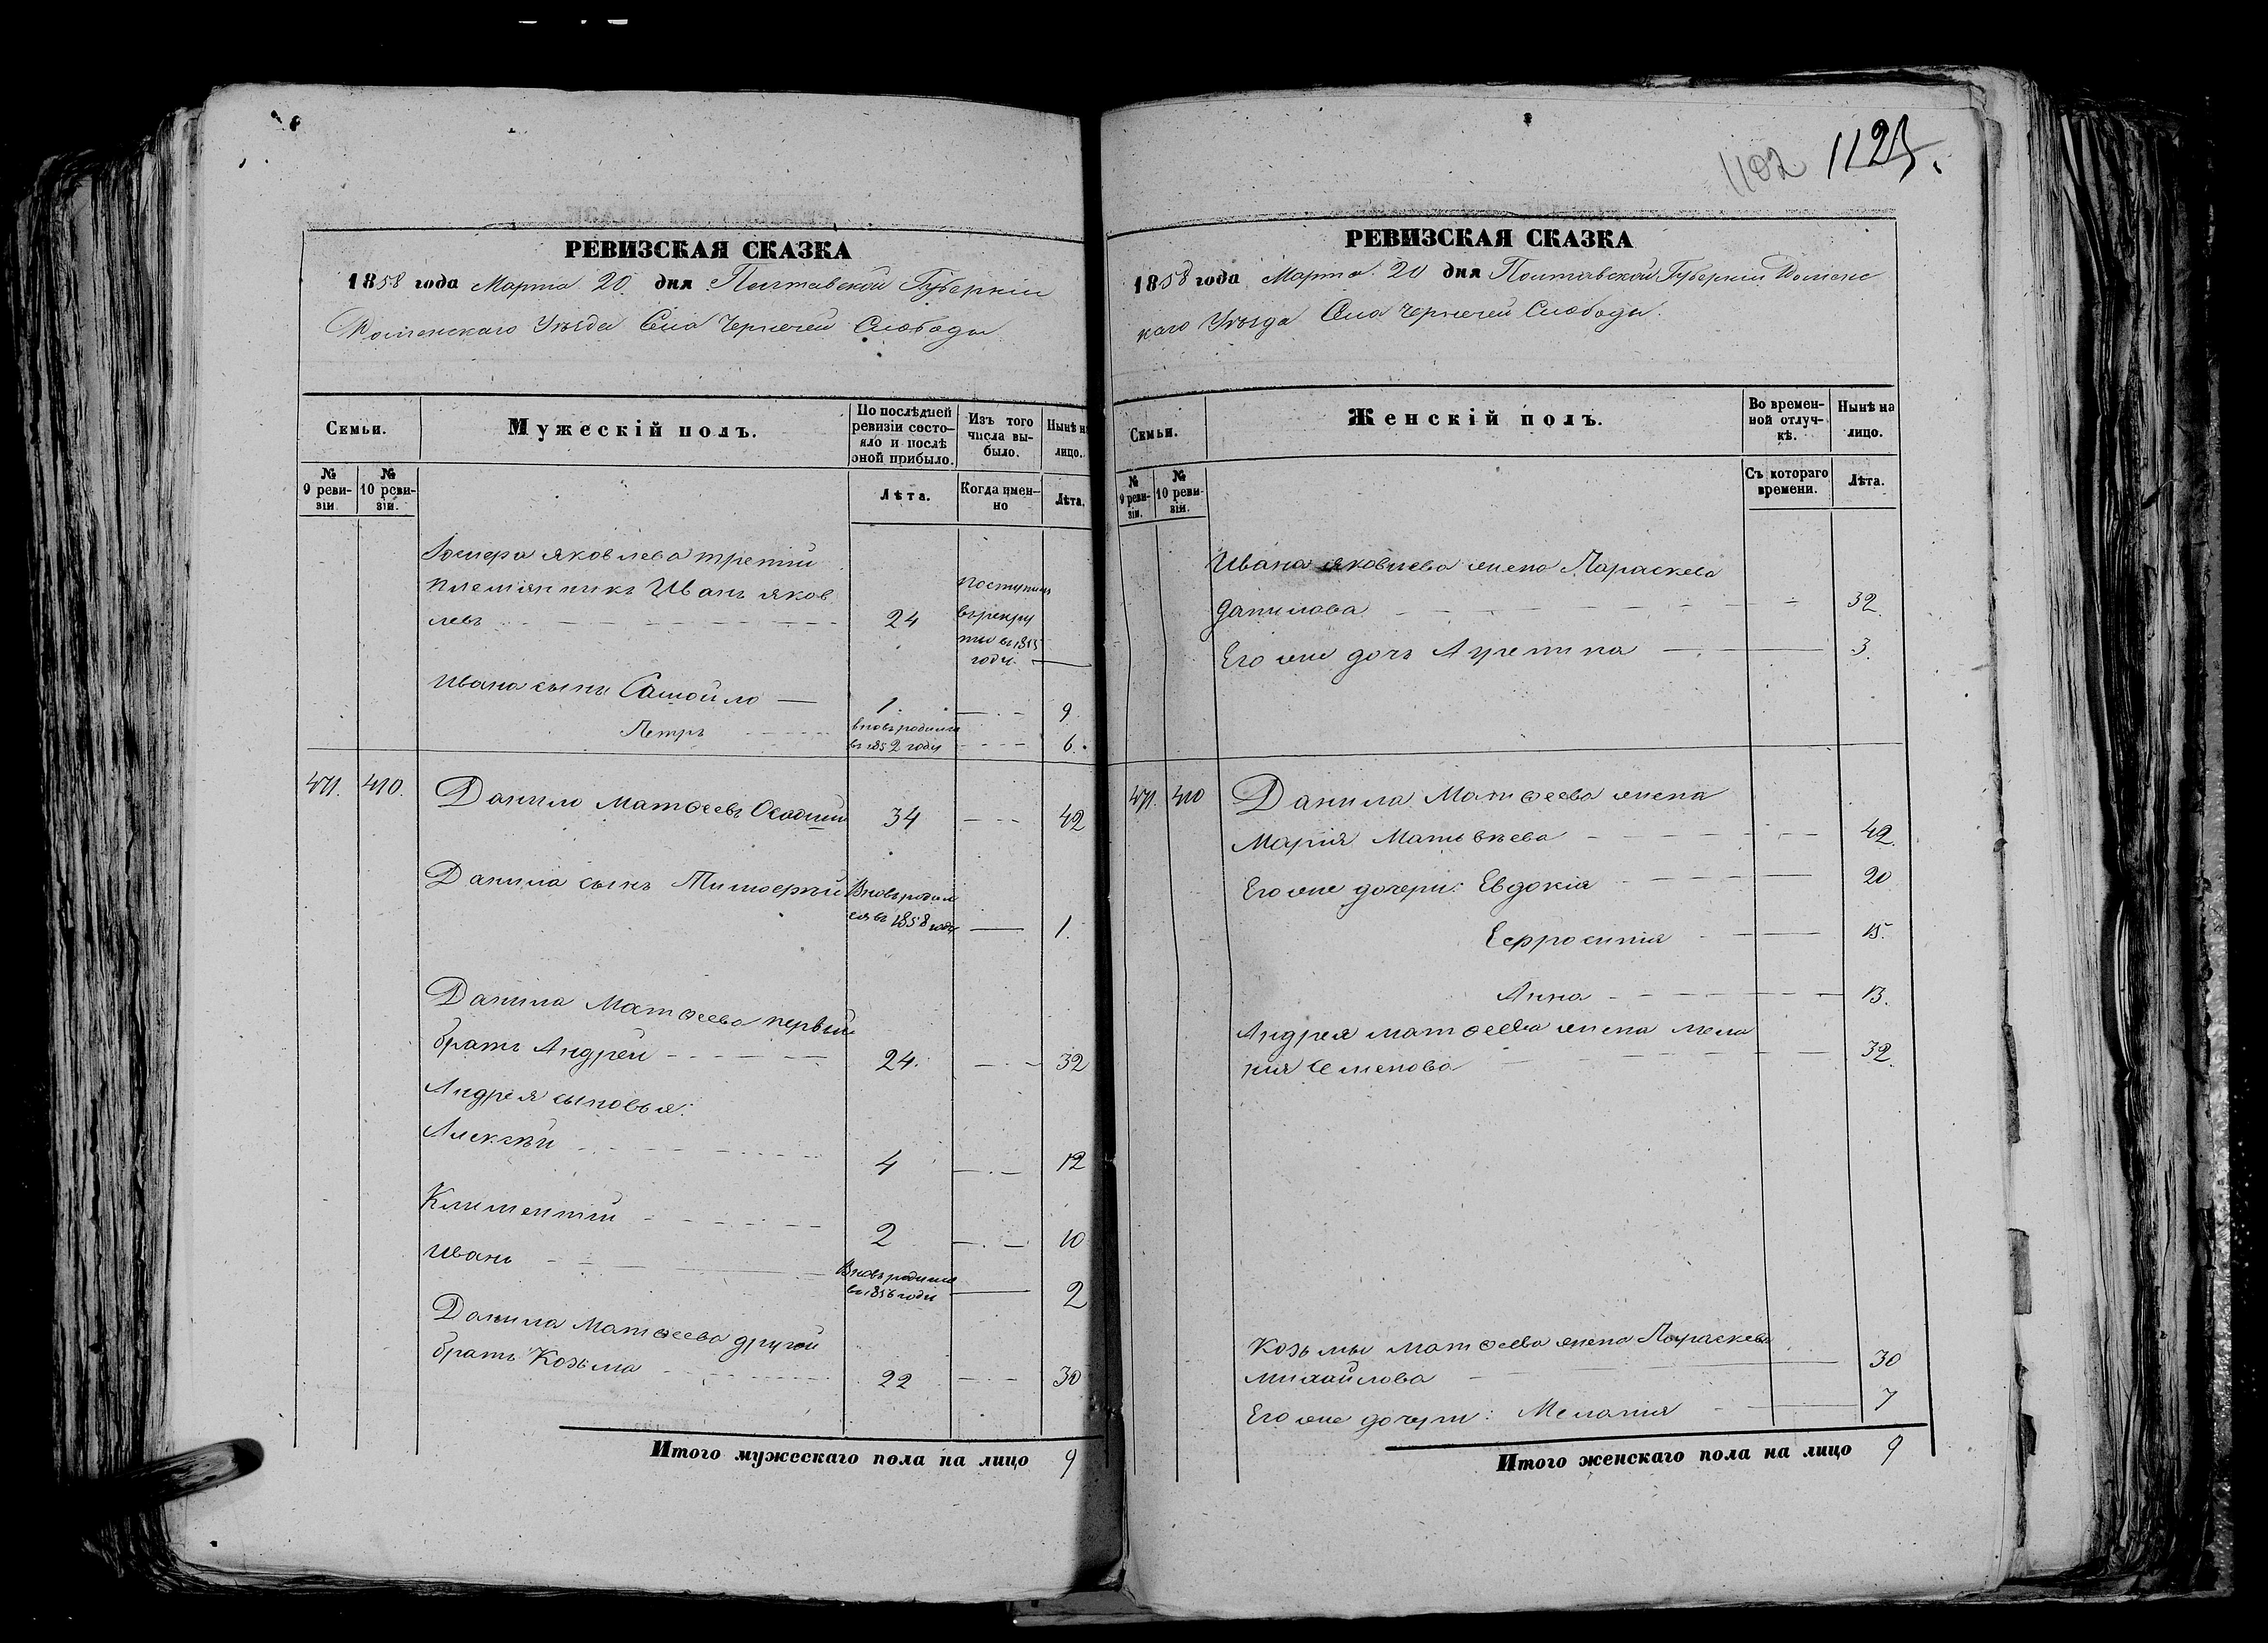 РЕВИЗСКАЯ СКАЗКА
1858 года Марта 20 дня Полтавской Губерніи
Роменскаго Уѣзда Села Чернечей Слободы
Семьи.
Мужескій полъ.
По послѣдней ревизіи состояло и послѣ оной прибыло.
Изъ того числа выбыло.
Нынѣ на лицо.
№ 9 ревизіи.
№ 10 ревизіи.
Лѣта.
Когда именно
Лѣта.
Яковлева третій
племянникъ Иванъ Яков
левъ 24
поступилъ
въ рекру
ты въ
году
Ивана сынъ Самойло 1. 9
Петръ вновь родился
въ 1852 году 6.
471. 410. Данило Матѳеевъ 34 42
Данила сынъ Тимоѳей Вновь родил
ся въ 1858 году 1.
Данила Матѳеева первый
братъ Андрей 24. 32
Андрея сыновья:
Алексѣй 4 12
Климентій 2 10
Иванъ Вновь родился
въ 1856 году 2
Данила Матѳеева другой
братъ Козьма 22 30
Итого мужескаго пола на лицо 9
1102 1123.
РЕВИЗСКАЯ СКАЗКА
1858 года Марта 20 дня Полтавской Губерніи Роменс
каго Уѣзда Села Чернечей Слободы.
Семьи.
Женскій полъ.
Во временной отлучкѣ.
Нынѣ на лицо.
№ 9 ревизіи.
№ 10 ревизіи.
Съ котораго времени.
Лѣта.
Ивана Яковлева жена Параскева
Данилова 32.
Его же дочь 3.
471. 410 Данила Матѳеева жена
Марія Матвѣева 42.
Его же дочери: Евдокія 20
Ефросинія 15.
Анна 13.
Андрея Матѳеева жена Мела
нія Семенова 32.
Козьмы Матѳеева жена Параскева
Михайлова 30
Его же дочери: Меланія 7
Итого женскаго пола на лицо 9